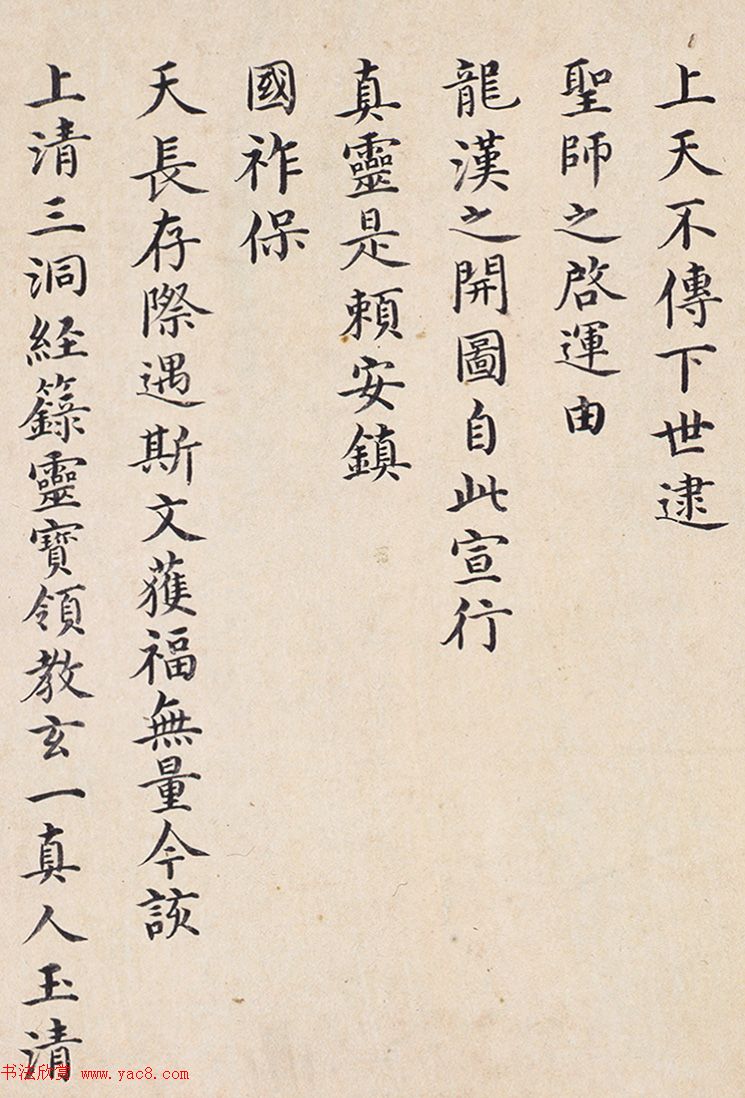 上天不傳下世逮
聖師之啓運由
龍漢之開圖自此宣行
真靈是頼安鎮
國祚保
天長存際遇斯文獲福無量今該
上清三洞経籙靈寳領教玄一真人玉清
书法欣赏 www.yac8.com